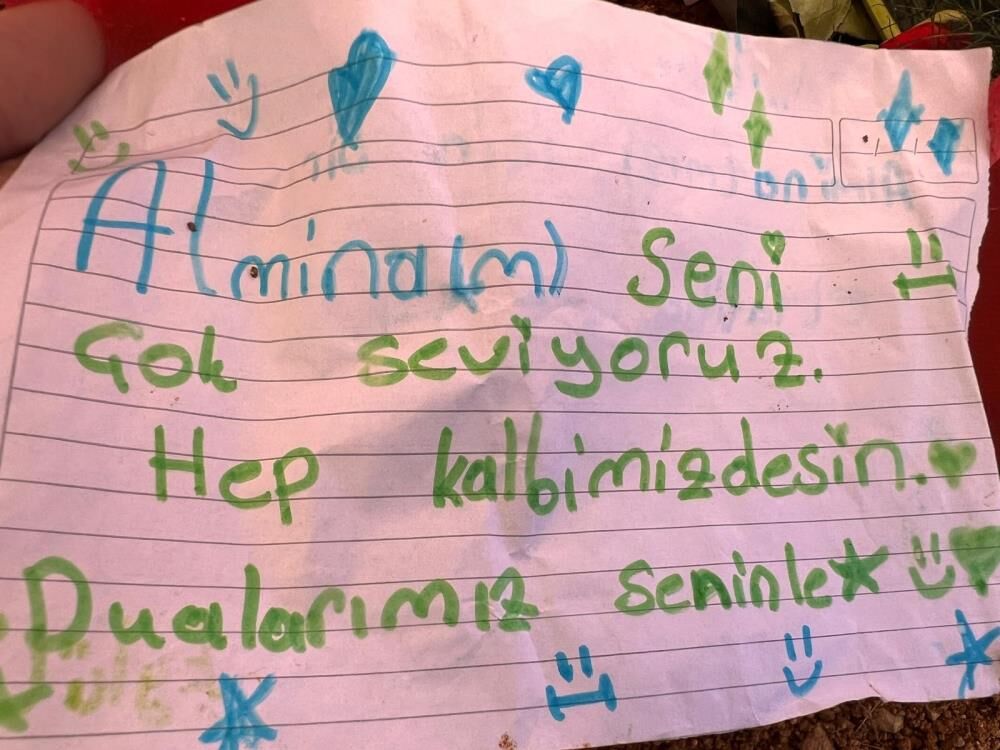 Almina(m) Seni
Çok seviyoruz.
Hep kalbimizdesin.
Dualarımız seninle